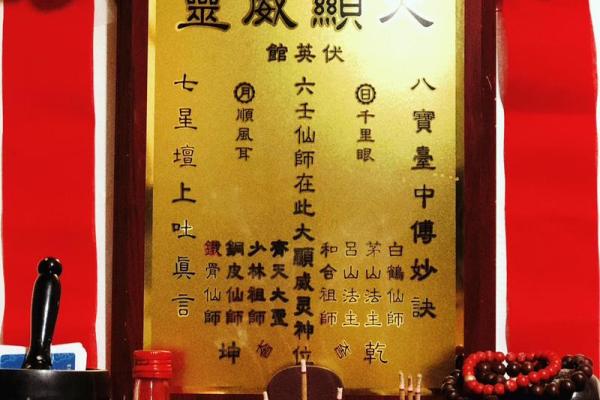 大顯威靈
伏英館
八寶臺中傅妙訣
日
千里眼
白鶴仙師
茅山法主
呂山法主
和合祖師
乾
六壬仙師在此大顯威灵神位
月
順風耳
齊天大聖
少林祖師
銅皮仙師
鐵骨仙師
坤
七星壇上吐眞言